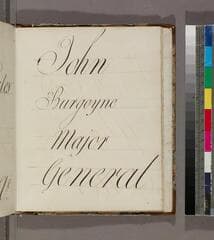 John
Burgoyne
Major
General